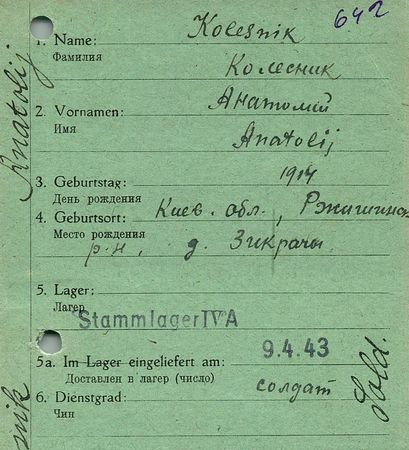 642
1. Name: Kolesnik
Фамилия
Колесник
2. Vornamen: Анатолий
Имя
Anatolij
3. Geburtstag: 1914
День рождения
4. Geburtsort: Киев. обл.,
Место рождения
р-н, д. Зикрачи
5. Lager:
Лагер
Stammlager IV A
5a. Im Lager eingeliefert am: 9.4.43
Доставлен в лагер (число)
6. Dienstgrad: солдат
Чин
Sold.
Anatolij
nik